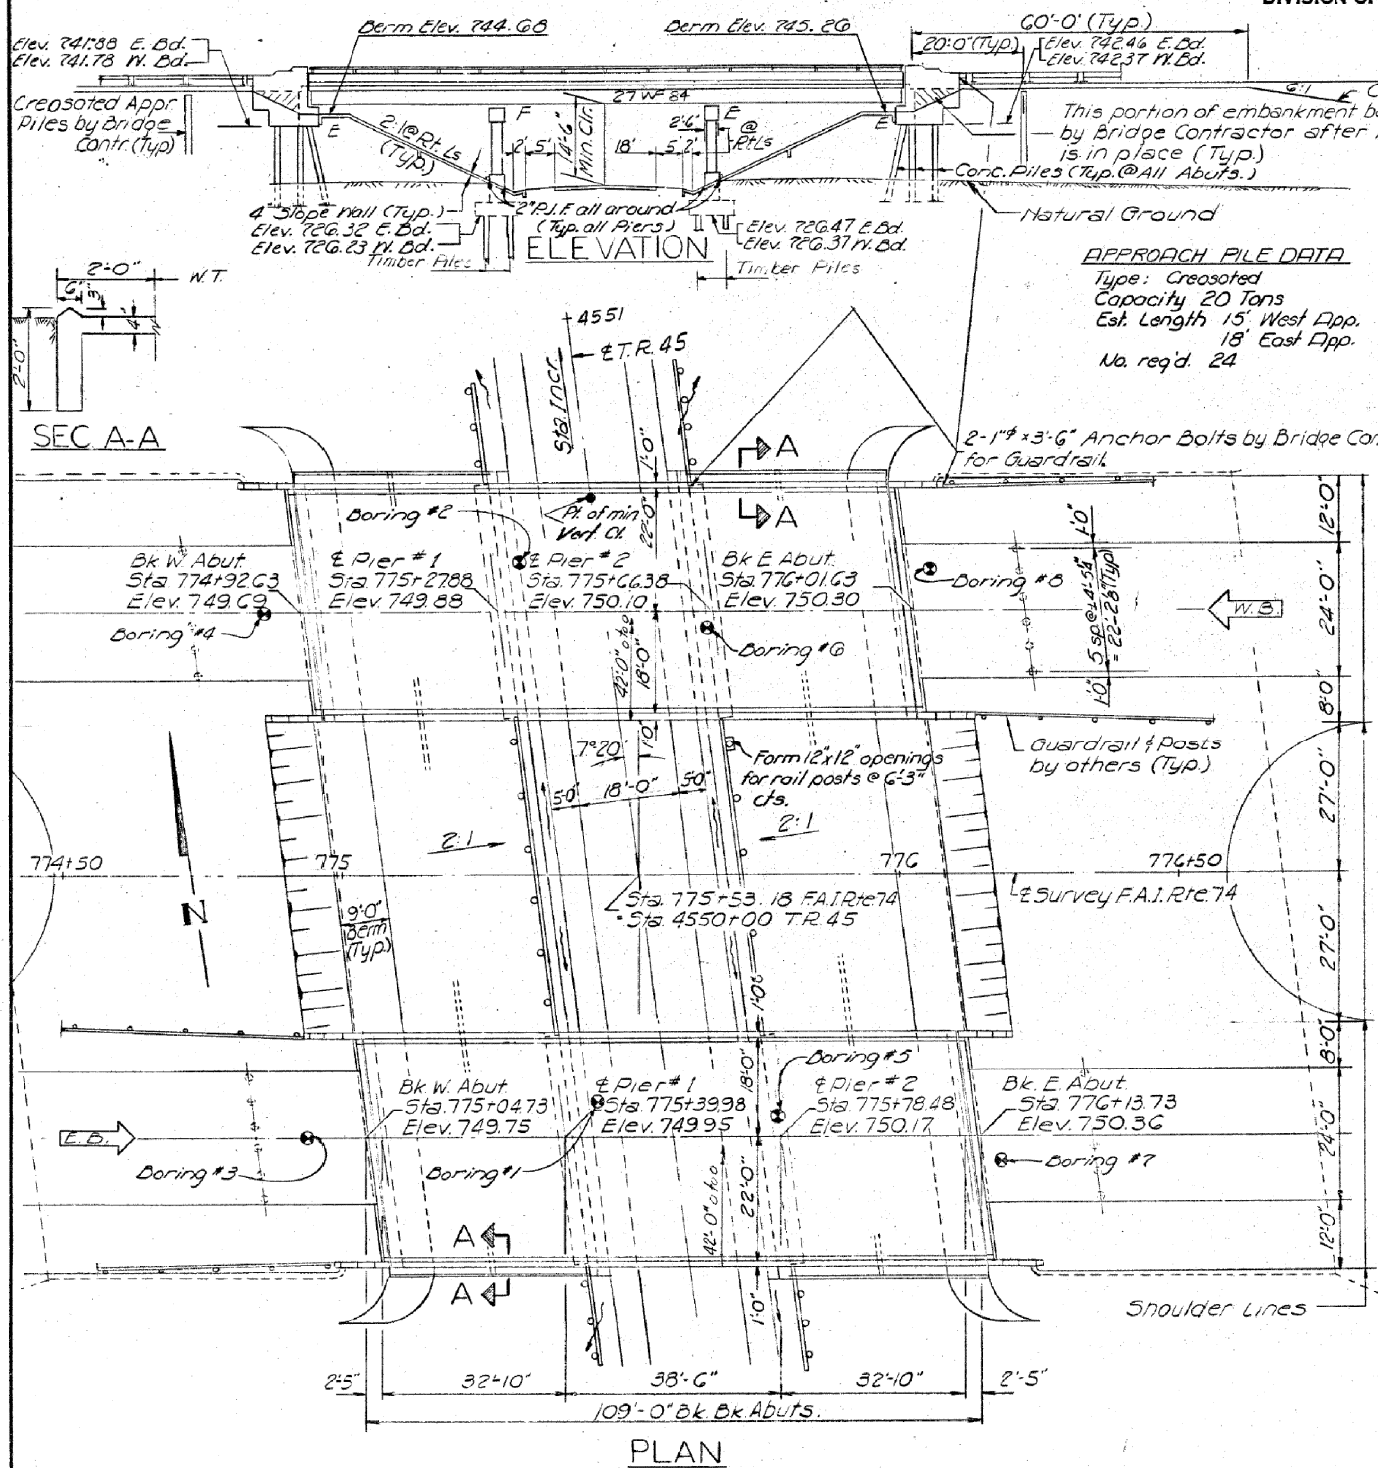 DIVISION OF
Berm Elev. 744.68
Berm Elev. 745.26
60'-0" (Typ.)
20'-0" (Typ.)
Elev. 741.88 E. Bd.
Elev. 741.78 W. Bd.
Elev. 742.46 E. Bd.
Elev. 742.37 W. Bd.
27 WF 84
6:1
Creosoted Appr.
Piles by Bridge
Contr. (Typ)
E
F
E
E
2:1 @ Rt. Ls
(Typ.)
2'
5'
14'-6"
Min. Clr.
18'
5'
2'
2'-6"
@
Rt Ls
This portion of embankment b
by Bridge Contractor after
is in place (Typ.)
Conc. Piles (Typ. @ All Abuts.)
4" Slope Wall (Typ.)
Elev. 726.32 E. Bd.
Elev. 726.23 W. Bd.
Timber Piles
2" P.J.F. all around
(Typ. all Piers)
Elev. 726.47 E. Bd.
Elev. 726.37 W. Bd.
Timber Piles
Natural Ground
ELEVATION
APPROACH PILE DATA
Type: Creosoted
Capacity 20 Tons
Est. Length 15' West App.
18' East App.
No. req'd. 24
2'-0"
W.T.
6"
3"
4"
2'-0"
SEC. A-A
4551
℄ T.R. 45
Sta. Incr.
1'-0"
22'-0"
A
A
2-1"ϕ x 3'-6" Anchor Bolts by Bridge Con
for Guardrail.
Boring #2
Pt. of min
Vert. Cl.
12'-0"
Bk W. Abut.
Sta. 774+92.63
Elev. 749.69
℄ Pier #1
Sta. 775+27.88
Elev. 749.88
℄ Pier #2
Sta. 775+66.38
Elev. 750.10
Bk E. Abut.
Sta. 776+01.63
Elev. 750.30
Boring #8
1'-0"
5 sp @ 4'-5⅝"
= 22'-2⅛" (Typ)
1'-0"
24'-0"
W.B.
Boring #4
Boring #6
42'-0" o to o
18'-0"
8'-0"
1'-0"
7°20'
5'-0"
18'-0"
5'-0"
Form 12"x12" openings
for rail posts @ 6'-3"
cts.
Guardrail & Posts
by others (Typ.)
27'-0"
2:1
2:1
774+50
775
776
776+50
N
9'-0"
Berm
(Typ.)
Sta. 775+53.18 F.A.I. Rte 74
Sta. 4550+00 T.R. 45
℄ Survey F.A.I. Rte. 74
27'-0"
1'-0"
8'-0"
18'-0"
Boring #5
Bk W. Abut.
Sta. 775+04.73
Elev. 749.75
℄ Pier #1
Sta. 775+39.98
Elev. 749.95
℄ Pier #2
Sta. 775+78.48
Elev. 750.17
Bk. E. Abut.
Sta. 776+13.73
Elev. 750.36
E.B.
24'-0"
Boring #3
Boring #1
Boring #7
42'-0" o to o
22'-0"
A
A
12'-0"
1'-0"
Shoulder Lines
2'-5"
32'-10"
38'-6"
32'-10"
2'-5"
109'-0" Bk. Bk. Abuts.
PLAN